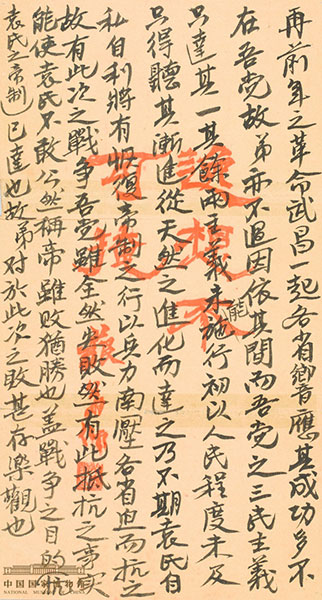 再前年之革命武昌一起各省響應其成功多不
在吾党故弟亦不過因依其間而吾党之三民主義
只達其一其餘兩主義未能施行初以人民程度未及
只得聽其漸進從天然之進化而達之乃不期袁氏自
私自利將有恢復帝制之行以兵力南壓各省迫而抗之
故有此次之戰爭吾党雖全然失敗然有此抵抗之事實
能使袁氏不敢公然稱帝雖敗猶勝也盖戰争之目的抗
袁氏之帝制已達也故弟对於此次之敗甚存樂觀也
中国国家博物馆
NATIONAL MUSEUM OF CHINA